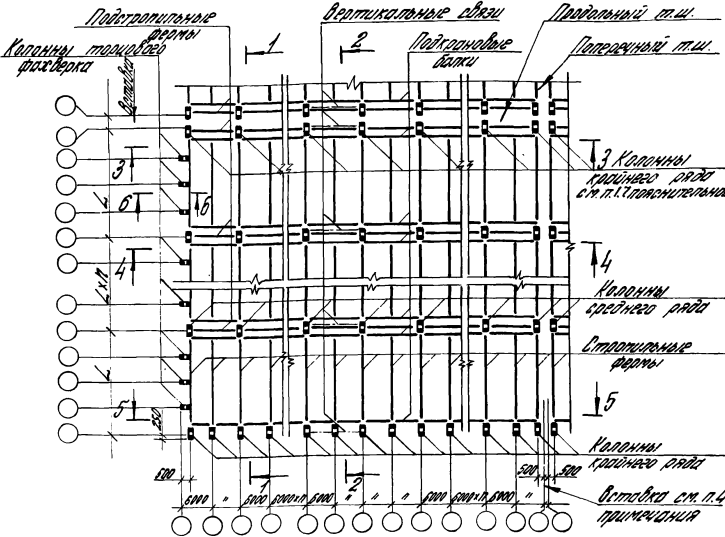 Подстропильные
фермы
Вертикальные связи
Продольный т.ш.
Колонны торцового
фахверка
1
2
Подкрановые
балки
Поперечный т.ш.
Вставка
3
3 Колонны
крайнего ряда
см. п. 1.7 пояснительной
6
6
L
4
4
L×n
Колонны
среднего ряда
Стропильные
фермы
L
5
5
250
Колонны
крайнего ряда
500
1
2
500
500
6000
"
6000
6000×n
6000
"
"
"
6000
6000×n
6000
"
Вставка см. п. 4
примечания